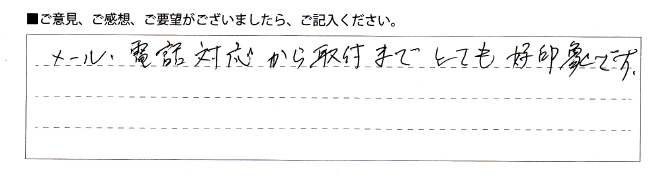 ■ご意見、ご感想、ご要望がございましたら、ご記入ください。
メール・電話対応から取付までとても好印象です.